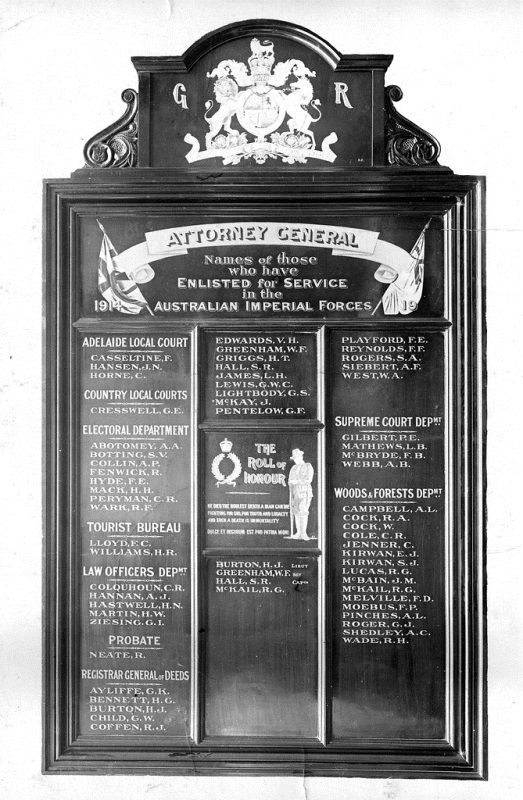 G R
ATTORNEY GENERAL
Names of those
who have
ENLISTED for SERVICE
in the
1914 AUSTRALIAN IMPERIAL FORCES 19
ADELAIDE LOCAL COURT
CASSELTINE, F.
HANSEN, J.N.
HORNE, C.
COUNTRY LOCAL COURTS
CRESSWELL, G.E.
ELECTORAL DEPARTMENT
ABOTOMEY, A.A.
BOTTING, S.V.
COLLIN, A.P.
FENWICK, R.
HYDE, F.E.
MACK, H.H.
PERYMAN, C.R.
WARK, R.F.
TOURIST BUREAU
LLOYD, F.C.
WILLIAMS, H.R.
LAW OFFICERS DEPMT
COLQUHOUN, C.R.
HANNAN, A.J.
HASTWELL, H.N.
MARTIN, H.W.
ZIESING, G.I.
PROBATE
NEATE, R.
REGISTRAR GENERAL of DEEDS
AYLIFFE, G.K.
BENNETT, H.G.
BURTON, H.J.
CHILD, G.W.
COFFEN, R.J.
EDWARDS, V.H.
GREENHAM, W.F.
GRIGGS, H.T.
HALL, S.R.
JAMES, L.H.
LEWIS, G.W.C.
LIGHTBODY, G.S.
McKAY, J.
PENTELOW, G.F.
THE
ROLL of
HONOUR
HE DIED THE NOBLEST DEATH A MAN CAN DIE
FIGHTING FOR GOD, FOR TRUTH AND LOYALTY
AND SUCH A DEATH IS IMMORTALITY
DULCE ET DECORUM EST PRO PATRIA MORI
BURTON, H.J. LIEUT
GREENHAM, W.F.
HALL, S.R. CAPTN
McKAIL, R.G.
PLAYFORD, F.E.
REYNOLDS, F.F.
ROGERS, S.A.
SIEBERT, A.F.
WEST, W.A.
SUPREME COURT DEPMT
GILBERT, P.E.
MATHEWS, L.B.
McBRYDE, F.B.
WEBB, A.B.
WOODS & FORESTS DEPMT
CAMPBELL, A.L.
COCK, R.A.
COCK, W.
COLE, C.R.
JENNER, C.
KIRWAN, E.J.
KIRWAN, S.J.
LUCAS, R.G.
McBAIN, J.M.
McKAIL, R.G.
MELVILLE, F.D.
MOEBUS, F.P.
PINCHES, A.L.
ROGER, G.J.
SHEDLEY, A.C.
WADE, R.H.